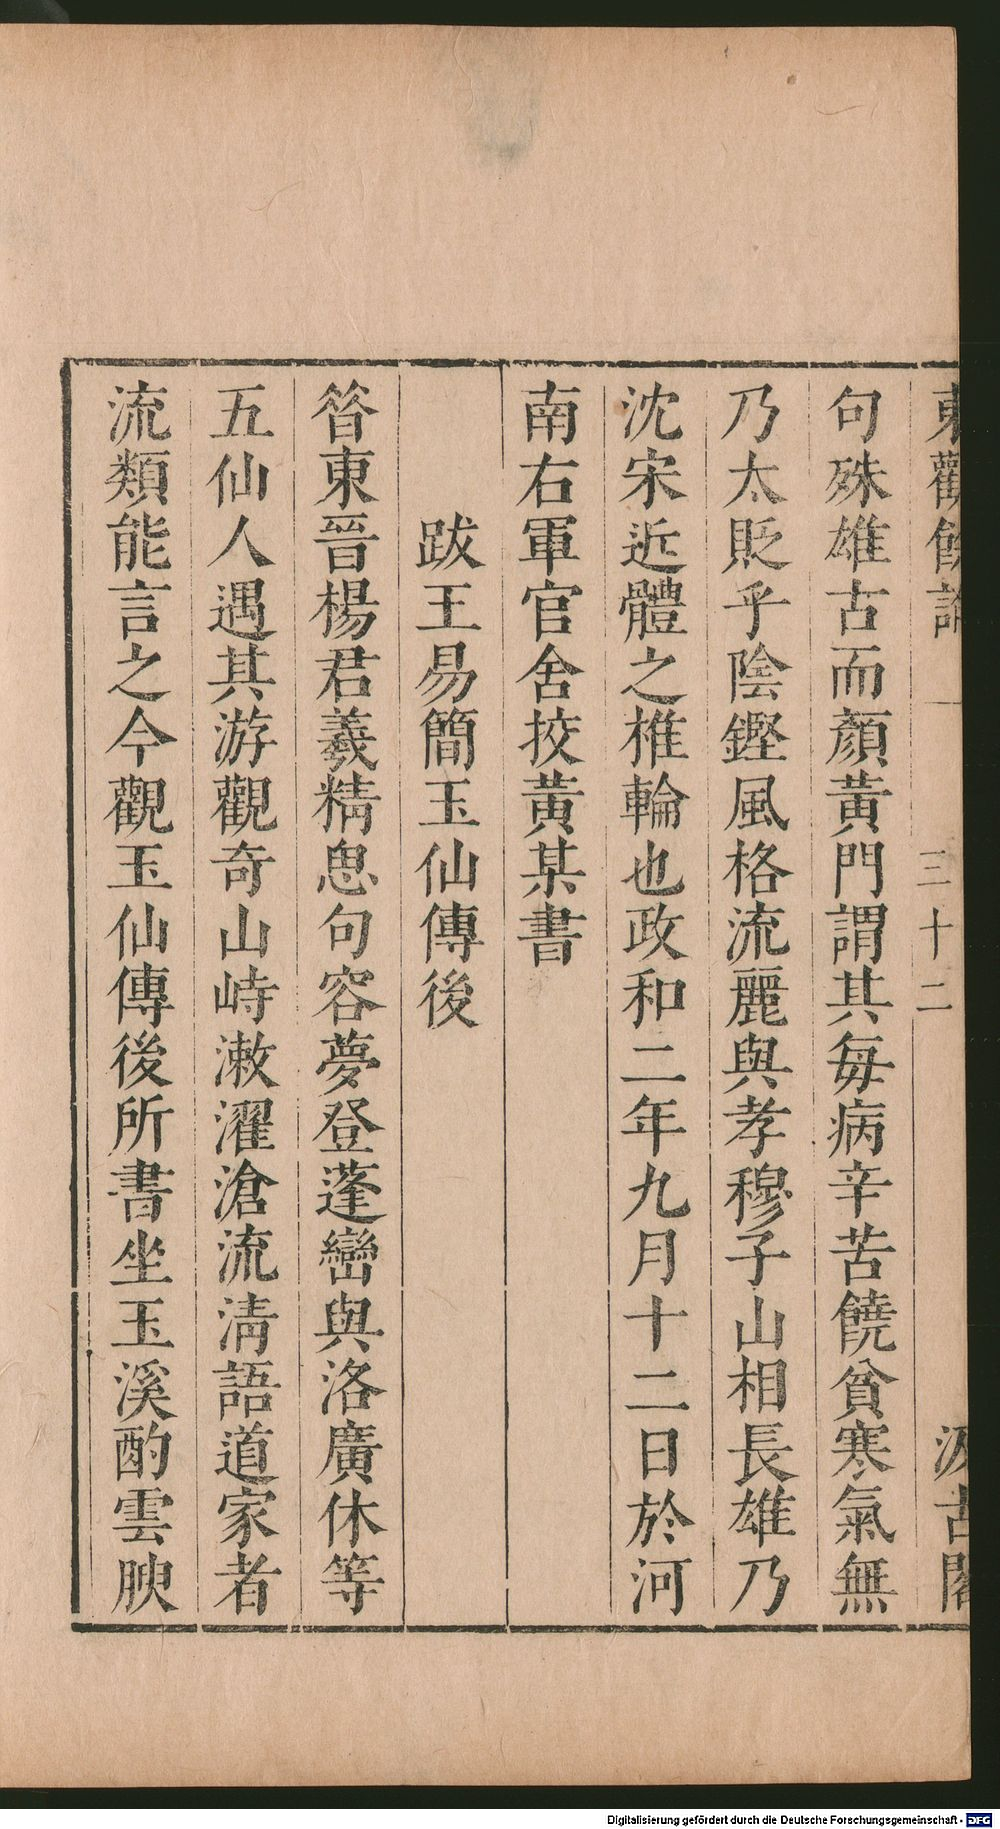 東觀餘論 三十二 汲古閣
句殊雄古而顏黄門謂其每病辛苦饒貧寒氣無
乃太貶乎陰鏗風格流麗與孝穆子山相長雄乃
沈宋近體之椎輪也政和二年九月十二日於河
南右軍官舍挍黄某書
跋王易簡玉仙傳後
昝東晉楊君羲精思句容夢登蓬巒與洛廣休等
五仙人遇其游觀奇山峙漱濯滄流清語道家者
流類能言之今觀玉仙傳後所書坐玉溪酌雲腴
Digitalisierung gefördert durch die Deutsche Forschungsgemeinschaft - DFG